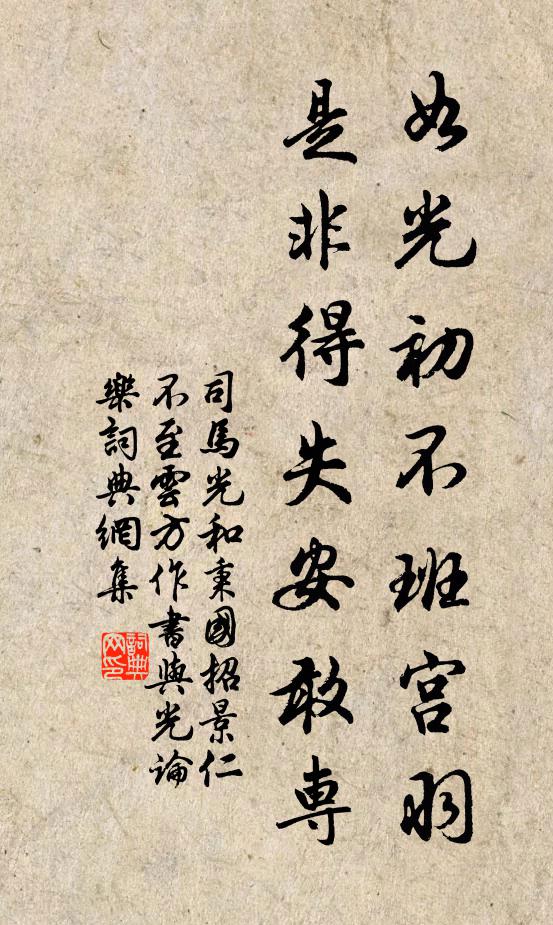 如光初不班宫羽
是非得失安敢専
司馬光和秉國招景仁
不至雲方作書與光論
樂詞典網集
詞典
网印